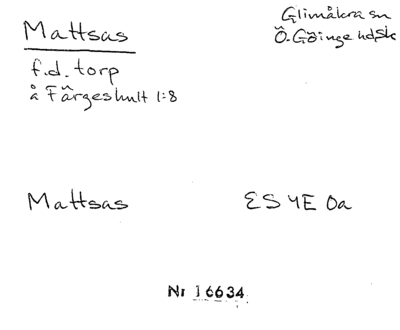 Mattsas
Glimåkra sn
Ö. Göinge hd Sk
f.d. torp
å Färgeshult 1:8
Mattsas
ES 4E 0a
Nr 16634